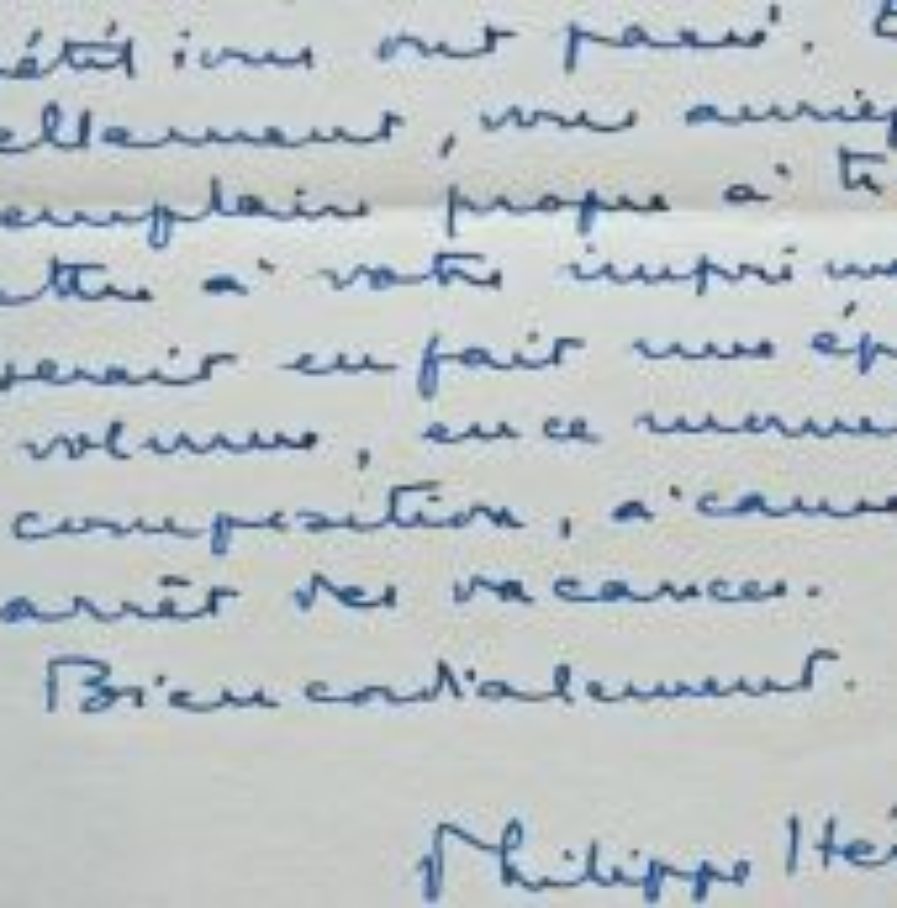 ont passé.
ellement, vous auriez
emplaire propre à
ettre à votre imprime
serait en fait une ép
volume, en ce momen
composition, à cause
arrêt des vacances.
Bien cordialement.
Philippe Hé